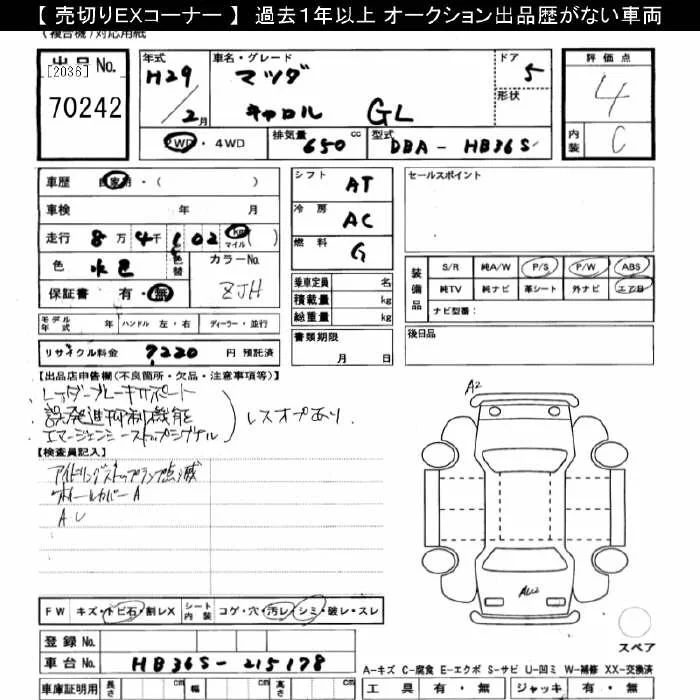 【 売切りEXコーナー 】 過去1年以上 オークション出品歴がない車両
(複合機)対応用紙
出品 No. [2036] 70242
年式 H29 / 2月
車名・グレード マツダ キャロル GL
ドア 5
形状
2WD・4WD
排気量 650 cc
型式 DBA - HB36S
評価点 4
内装 C
車歴 自家用・( )
車検 年 月
走行 8万 4千 102 km マイル ( )
色 水色 色替
カラーNo. ZJH
保証書 有・無
モデル年式 年 ハンドル 左・右 ディーラー・並行
リサイクル料金 7220 円 預託済
シフト AT
冷房 AC
燃料 G
乗車定員 名
積載量 kg
総重量 kg
書類期限 月 日
セールスポイント
装備品 S/R 純A/W P/S P/W ABS
純TV 純ナビ 革シート 外ナビ エアB
ナビ型番:
後日品
【出品店申告欄(不良箇所・欠品・注意事項等)】
レーダーブレーキサポート
誤発進抑制機能
エマージェンシーストップシグナル
レスオプあり.
【検査員記入】
アイドリングストップランプ点滅
ホイールカバーA
AU
A2
AU2
FW キズ・トビ石・割レX シート内装 コゲ・穴・汚レ・シミ・破レ・スレ
スペア
登録 No.
車台 No. HB36S - 215178
A-キズ C-腐食 E-エクボ S-サビ U-凹ミ W-補修 XX-交換済
車庫証明用 長さ cm 幅 cm 高さ cm
工具 有・無 ジャッキ 有・無